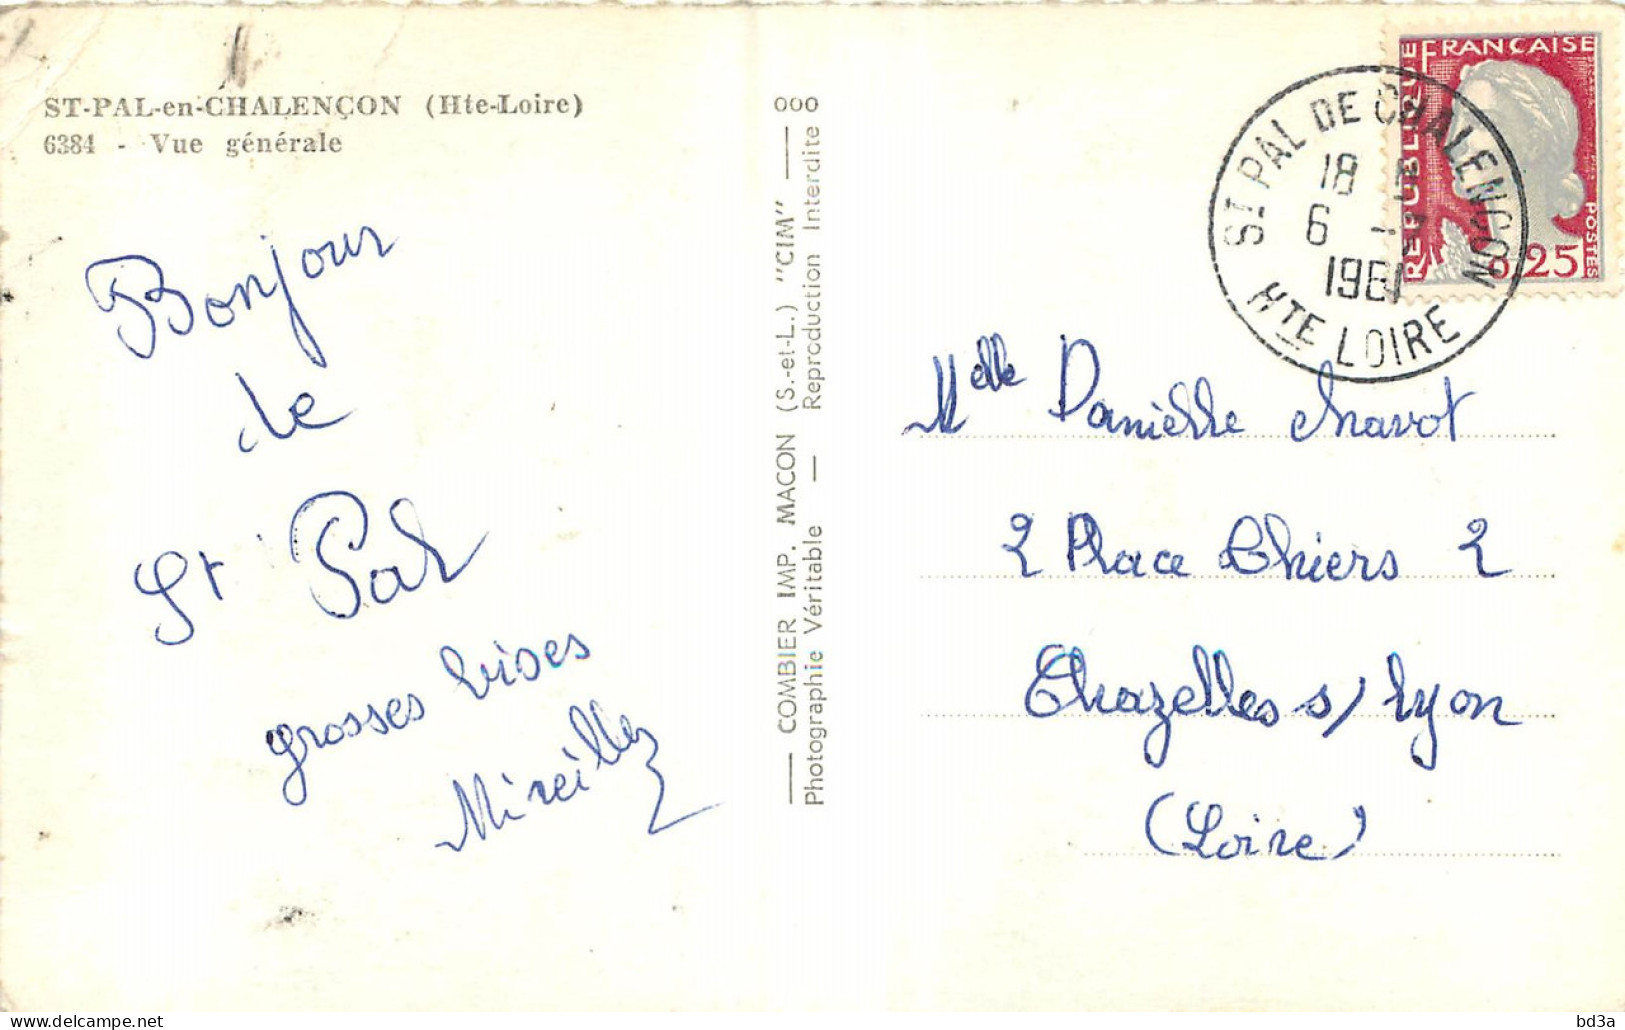 ST-PAL-en-CHALENÇON (Hte-Loire)
6384 - Vue générale
Bonjour
de
St Pal
grosses bises
Mireille
COMBIER IMP. MACON (S.-et-L.) "CIM"
Photographie Véritable — Reproduction Interdite
REPUBLIQUE FRANÇAISE
POSTES
0,25
ST PAL DE CHALENCON
18
6
1961
HTE LOIRE
Melle Danielle Chavot
2 Place Thiers 2
Chazelles s/ Lyon
(Loire)
bd3a
Delcampe.net